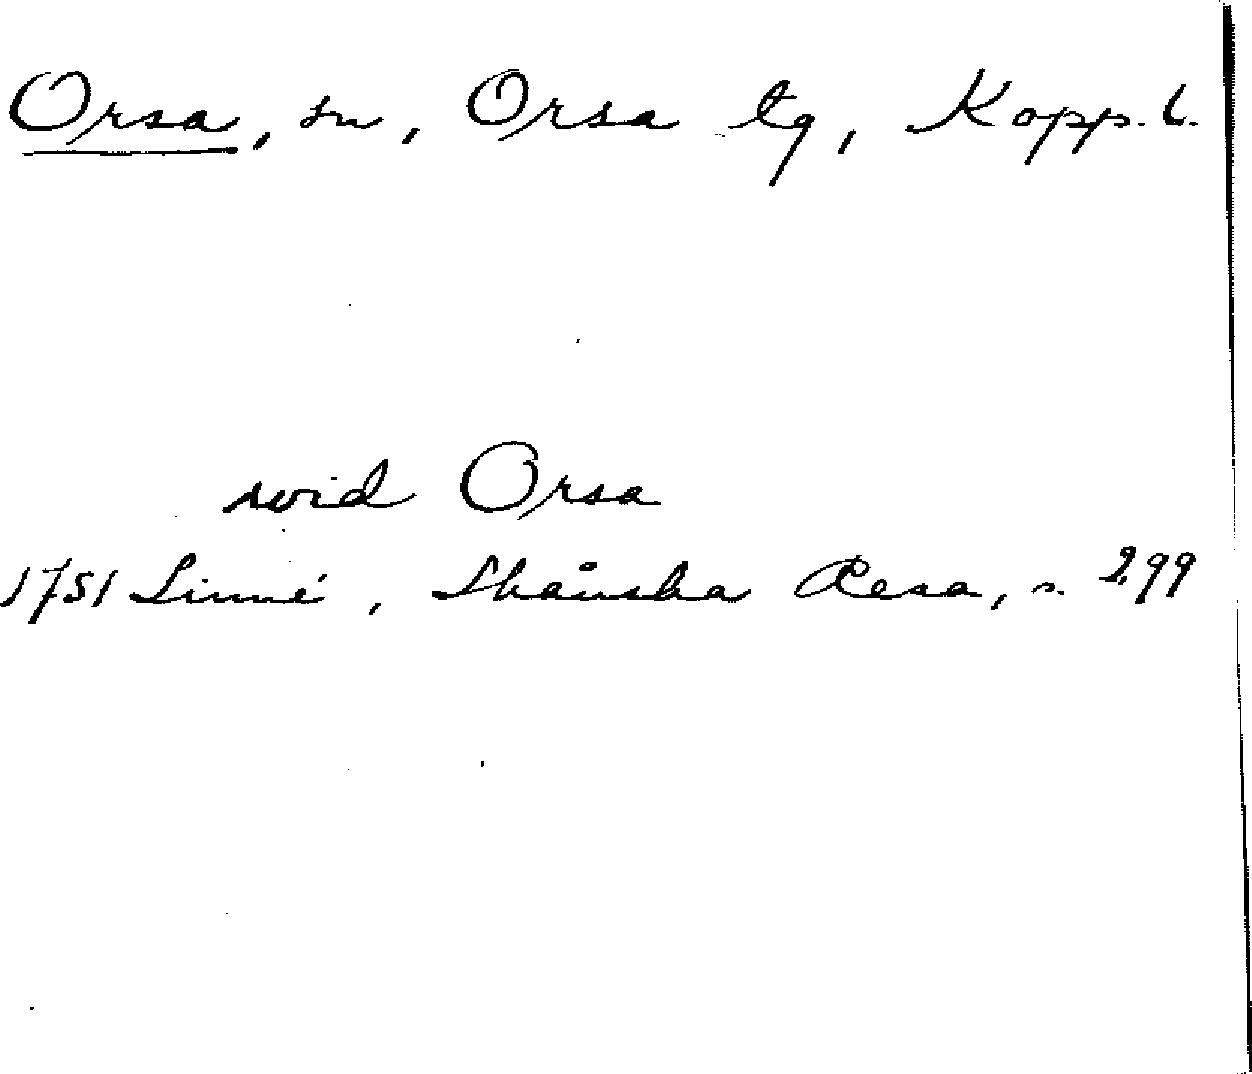 Orsa, sn, Orsa tg, Kopp. l.
wid Orsa
1751 Linné, Skånska Resa, s. 299